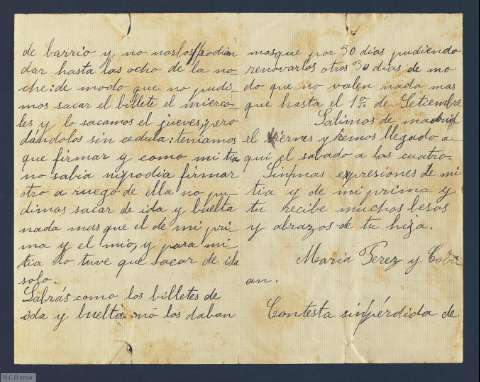 de barrio y no nos los podian
dar hasta las ocho de la no
che: de modo que no pudi
mos sacar el billete el mierco
les y lo sacamos el jueves, pero
dándolos sin cedula: teniamos
que firmar y como mi tia
no sabia ni podia firmar
otro a ruego de ella no pu
dimos sacar de ida y buelta
nada mas que el de mi pri
ma y el mio, y para mi
tia no tuve que sacar de ida
solo.
Sabrás como los billetes de
ida y buelta no los daban
masque por 30 dias pudiendo
renovarlos otros 30 dias de mo
do que no valen nada mas
que hasta el 1º de Setiembre
Salimos de madrid
el viernes y hemos llegado a
qui el sabado a las cuatro.
Sin mas expresiones de mi
tia y de mi prima y
tu recibe muchos besos
y abrazos de tu hija.
Maria Perez y
an.
Contesta sin pérdida de